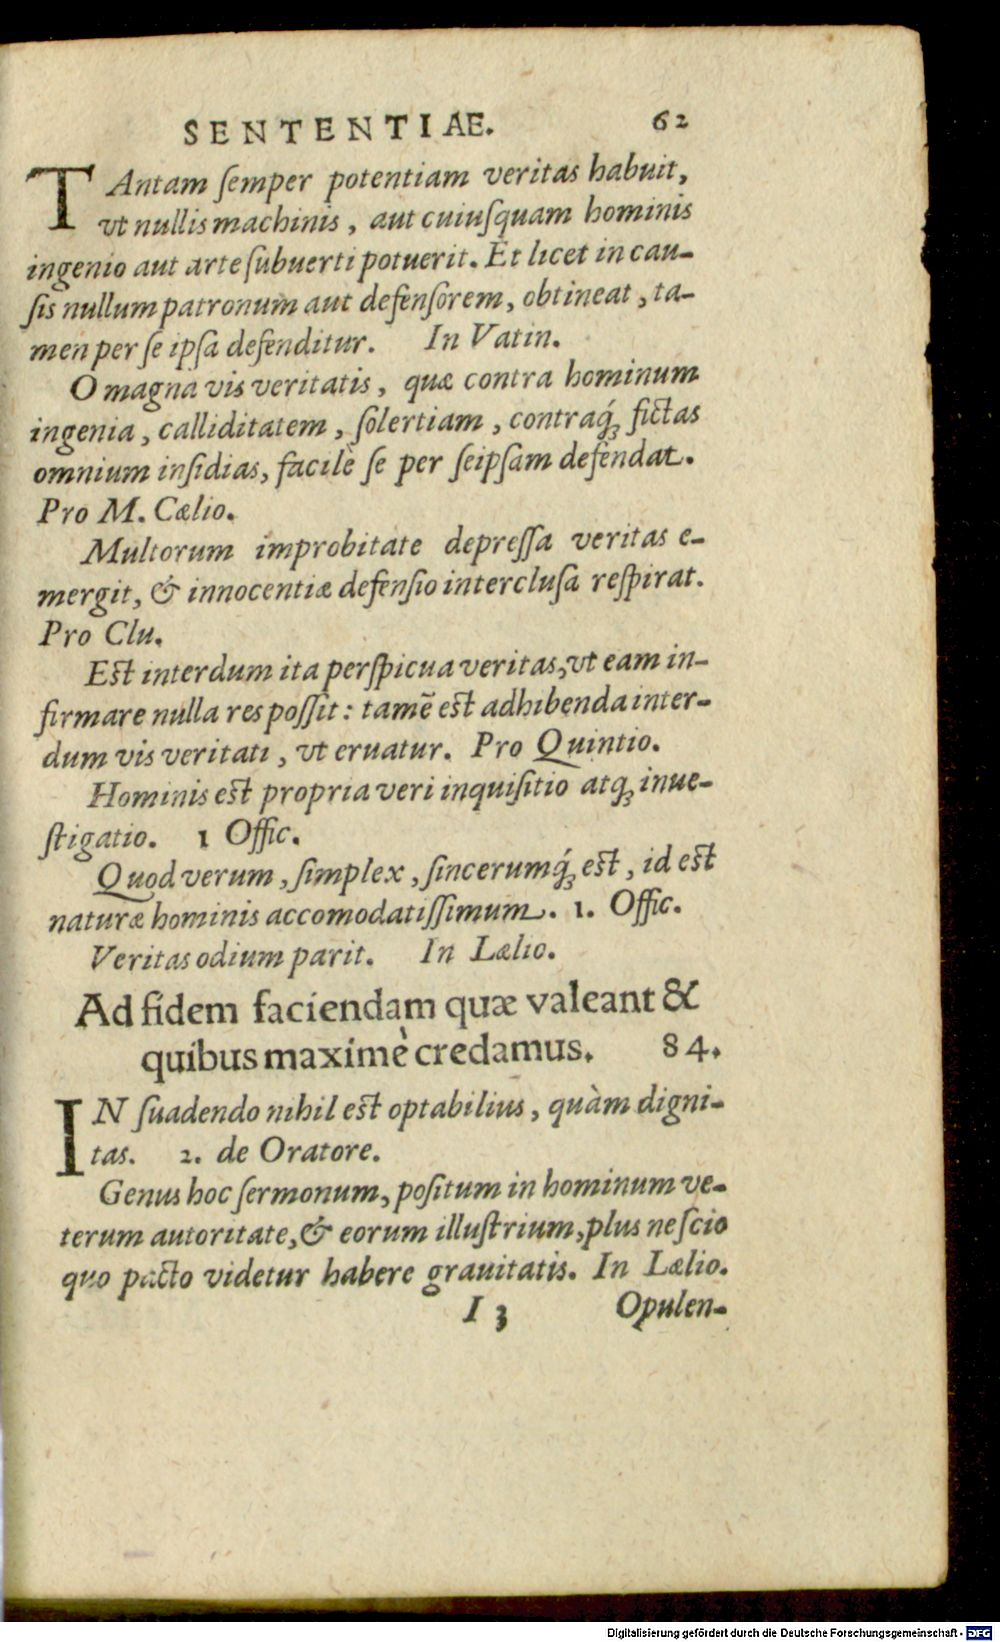 SENTENTIAE. 62
TAntam ſemper potentiam veritas habuit,
vt nullis machinis, aut cuiuſquam hominis
ingenio aut arte ſubuerti potuerit. Et licet in cau-
ſis nullum patronum aut defenſorem, obtineat, ta-
men per ſe ipſa defenditur. In Vatin.
O magna vis veritatis, quæ contra hominum
ingenia, calliditatem, ſolertiam, contraq́ꝫ fictas
omnium inſidias, facilè ſe per ſeipſam defendat.
Pro M. Cælio.
Multorum improbitate depreſſa veritas e-
mergit, & innocentiæ defenſio intercluſa reſpirat.
Pro Clu.
Eſt interdum ita perſpicua veritas, vt eam in-
firmare nulla res poſſit: tamē eſt adhibenda inter-
dum vis veritati, vt eruatur. Pro Quintio.
Hominis eſt propria veri inquiſitio atqꝫ inue-
ſtigatio. 1 Offic.
Quod verum, ſimplex, ſincerumq́ꝫ eſt, id eſt
naturæ hominis accomodatiſſimum. 1. Offic.
Veritas odium parit. In Lælio.
Ad fidem faciendam quæ valeant &
quibus maximè credamus. 84.
IN ſuadendo nihil eſt optabilius, quàm digni-
tas. 2. de Oratore.
Genus hoc ſermonum, poſitum in hominum ve-
terum autoritate, & eorum illuſtrium, plus neſcio
quo pacto videtur habere grauitatis. In Lælio.
I 3 Opulen-
Digitalisierung gefördert durch die Deutsche Forschungsgemeinschaft - DFG